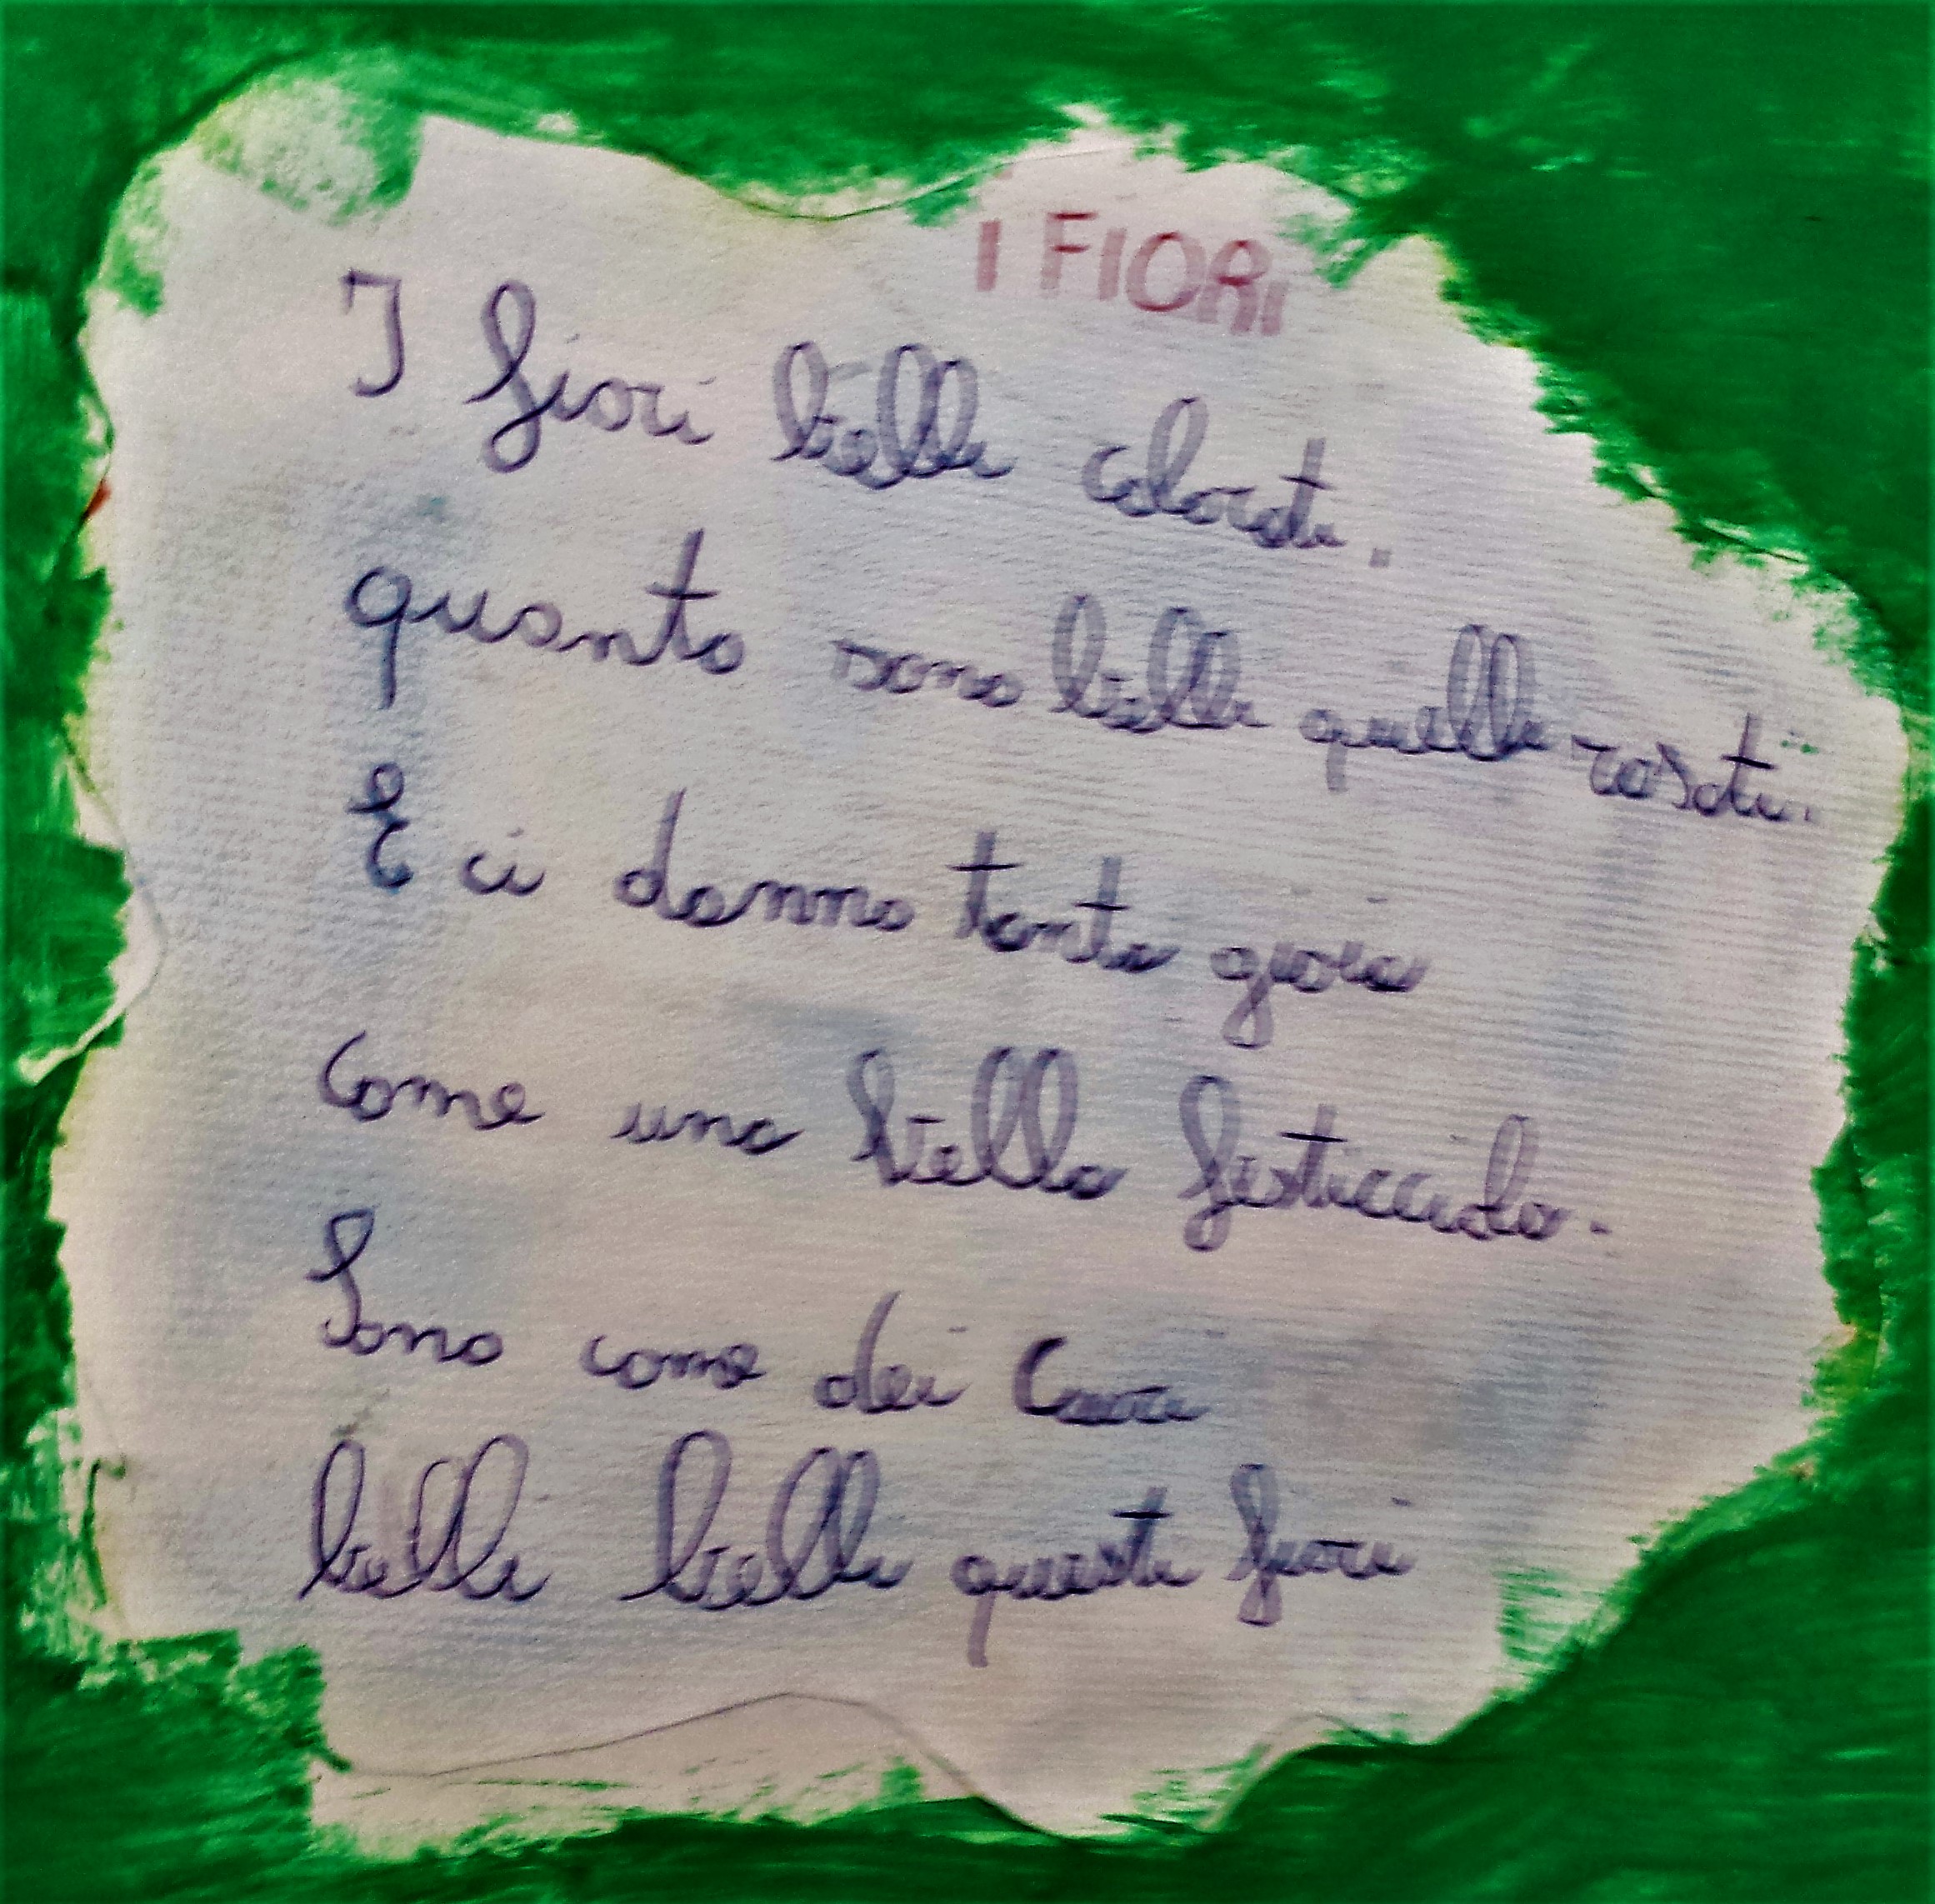 I FIORI
I fiori belli colorati.
quanto sono belli quelli rosati.
E ci danno tanta gioia
come una bella festicciola.
Sono come dei Cuori
belli belli questi fiori